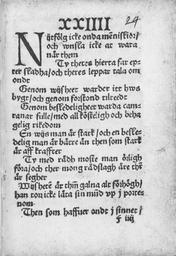 XXIIII
24
Nytfölg icke onda menniskior
och onsla icke at wara
när them
Ty theres hierta far ep
ter skadha/och theres leppar tala om
onde
Genom wijsheet warder itt hws
bygt/och genom forstond tilreedt
Genom besledeligheet warda cam
ranar fulle/med all kosteligh och beha
geligh rikedom
En wijs man är stark/och en besles
delig man är bätre än then som stark
är aff krafter
Ty med rådh moste man ölegh
föra/och ther mong rådslagh äre ther
är seger
Wijsheet är them galna alt förhögh/
han torr icke låta sin mwd vp j portes
nom
Then som haffuer ondt j sinnet/